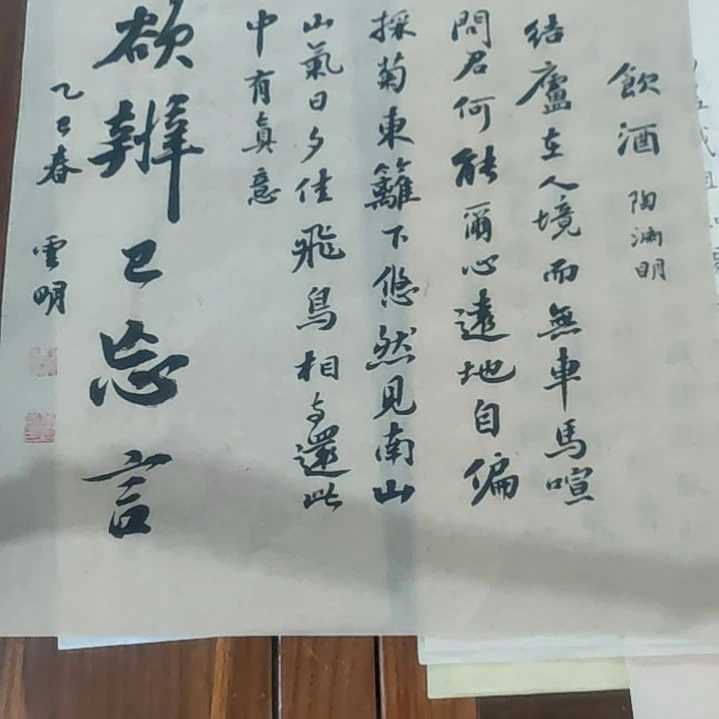 飲酒 陶淵明
結廬在人境而無車馬喧
問君何能爾心遠地自偏
採菊東籬下悠然見南山
山氣日夕佳飛鳥相與還此
中有真意
欲辨已忘言
乙巳春 雲明